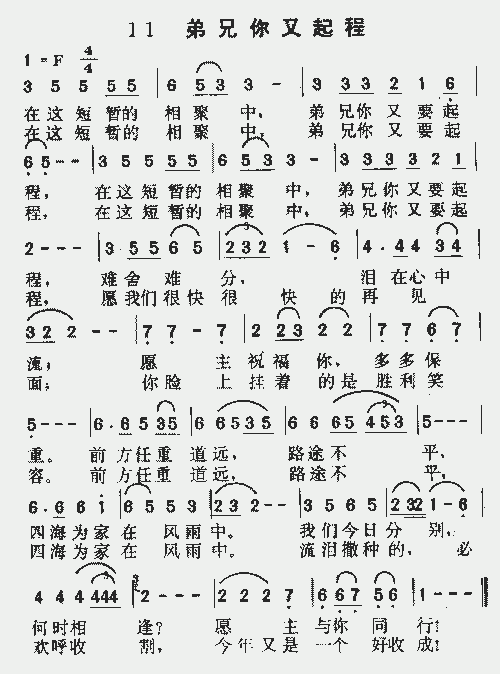 11 弟兄你又起程
1=F 4/4
3 5 5 5 5 | 6 5 3 3 - | 3 3 3 2 1 6 |
在这短暂的相聚中, 弟兄你又要起
在这短暂的相聚中; 弟兄你又要起
6 5 - - - | 3 5 5 5 5 | 6 5 3 3 - | 3 3 3 3 2 1 |
程, 在这短暂的相聚中, 弟兄你又要起
程, 在这短暂的相聚中, 弟兄你又要起
2 - - - | 3 5 5 6 5 | 2 3 2 1 - 6 | 4 · 4 4 3 4 |
程, 难舍难分, 泪在心中
程, 愿我们很快很快的再见
3 2 2 - - | 7 7 - 7 | 2 2 3 2 2 | 7 7 6 7 |
流; 愿主祝福你、多多保
面; 你脸上挂着的是胜利笑
5 - - - | 6 · 6 5 3 5 | 6 6 5 3 5 | 6 6 6 5 4 5 3 | 5 - - - |
重。前方任重道远, 路途不平,
容。前方任重道远, 路途不平,
6 · 6 6 i | 6 5 5 3 | 2 3 2 - - | 3 5 6 5 | 2 3 2 1 - 6 |
四海为家在风雨中。我们今日分别,
四海为家在风雨中。流泪撒种的, 必
4 4 4 4 4 4 | 2 - - - | 2 2 2 7 | 6 6 7 5 6 6 | 1 - - - ‖
何时相逢? 愿主与你同行!
欢呼收割, 今年又是一个好收成!